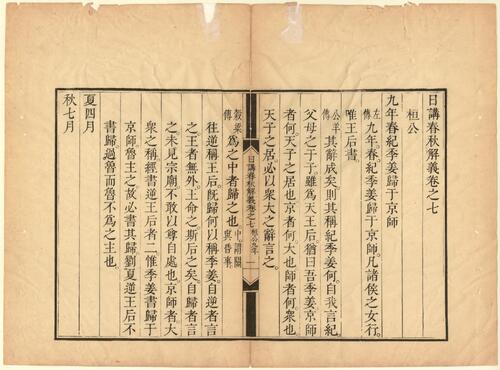 日講春秋解義卷之七
桓公
九年春紀季姜歸于京師
左傳九年春紀季姜歸于京師。凡諸侯之女行。
唯王后書
公羊傳其辭成矣。則其稱紀季姜何。自我言紀。
父母之于子。雖爲天王后。猶曰吾季姜。京師
者何。天子之居也。京者何。大也。師者何。衆也。
天子之居。必以衆大之辭言之。
日講春秋解義卷之七 桓公九年 一
穀梁傳爲之中者歸之也。中謂關與昏事
往逆稱王后。既歸何以稱季姜。自逆者言
之。王者無外。王命之。斯后之矣。自歸者言
之。未見宗廟。不敢以尊自處也。京師者。大
衆之稱。經書逆王后者二。惟季姜書歸于
京師。魯主之。故必書其歸。劉夏逆王后。不
書歸。過魯而魯不爲之主也。
夏四月
秋七月